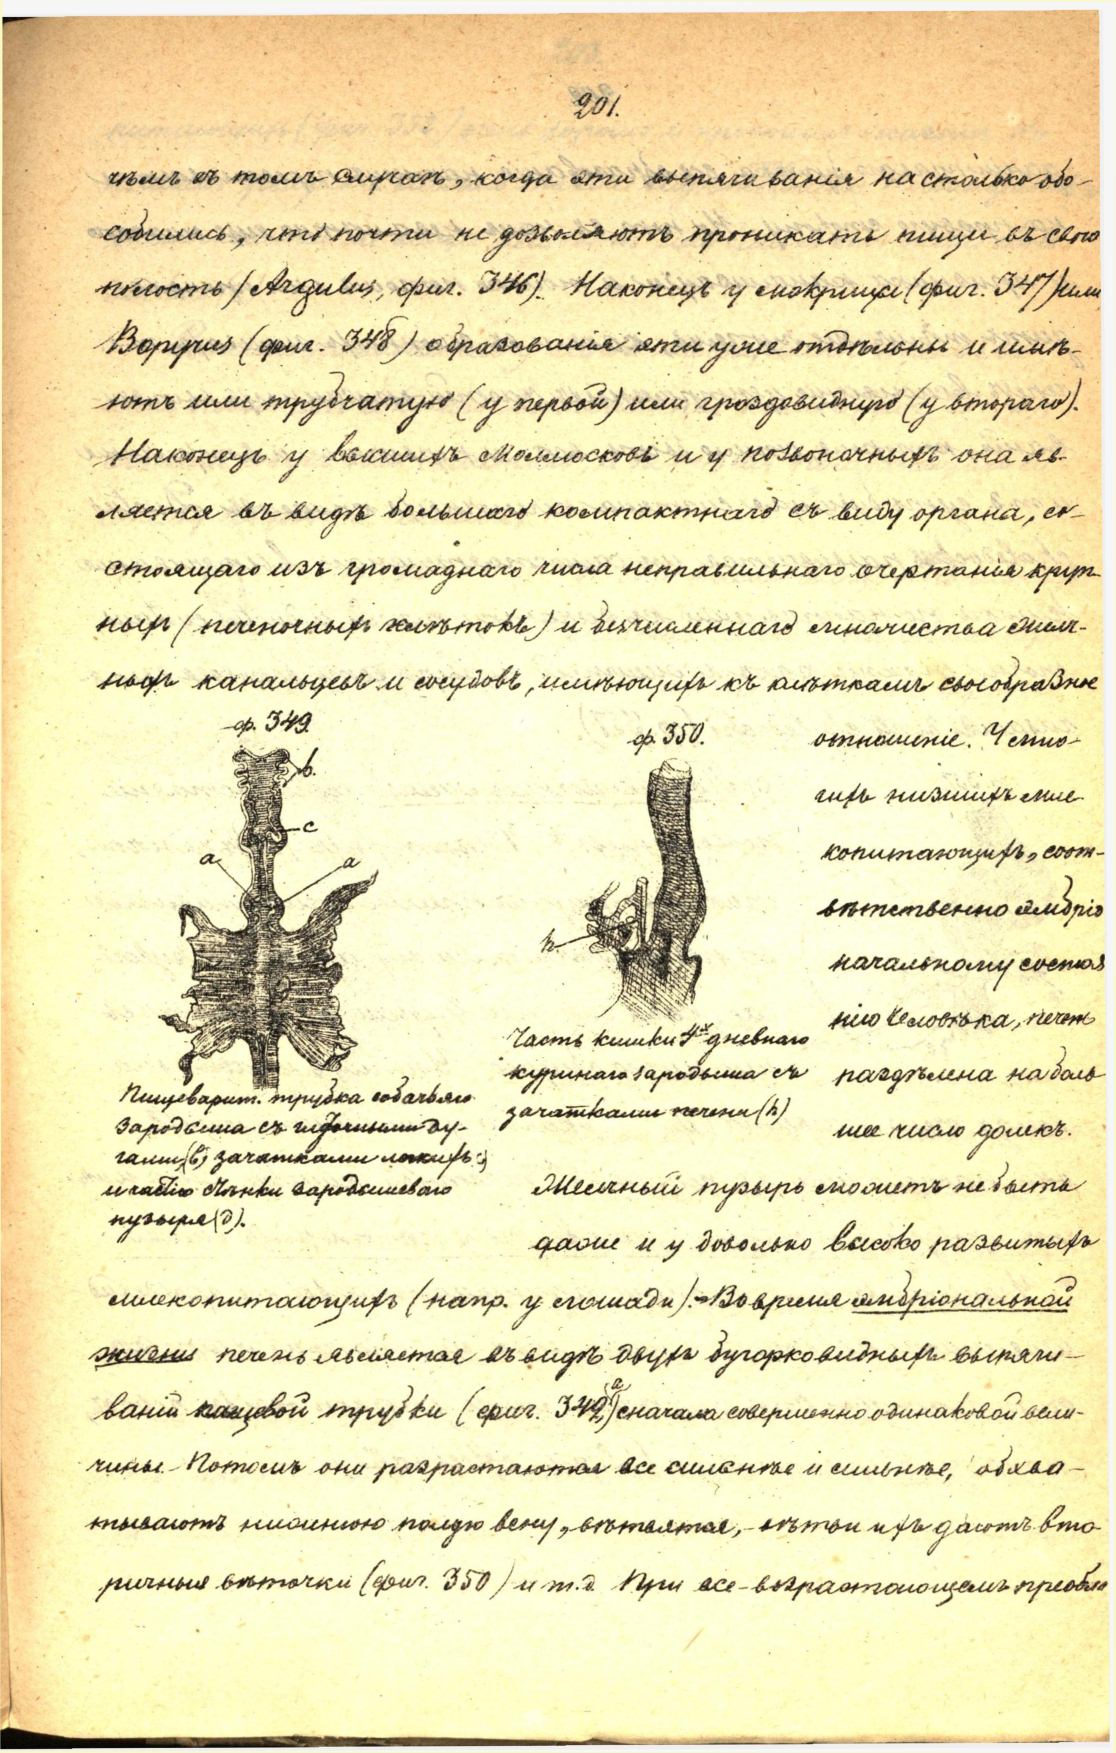 201.
чѣмъ въ томъ случаѣ, когда эти выпячиванія настолько обо-
собились, что почти не дозволяютъ проникать пищи въ свою
полость (Argulus, фиг. 346). Наконецъ у мокрицы (фиг. 347) или
Bopyrus (фиг. 348) образованія эти уже отдѣльны и имѣ-
ютъ или трубчатую (у первой) или гроздовидную (у втораго).
Наконецъ у высшихъ моллюсковъ и у позвоночныхъ она яв-
ляется въ видѣ большаго компактнаго съ виду органа, со-
стоящаго изъ громаднаго числа неправильнаго очертанія круп-
ныхъ (печеночныхъ клѣтокъ) и безчисленнаго множества желч-
ныхъ канальцевъ и сосудовъ, имѣющихъ къ клѣткамъ своеобразное
отношеніе. У мно-
гихъ низшихъ мле-
копитающихъ, соот-
вѣтственно эмбріо
начальному состоя
нію человѣка, печень
раздѣлена на боль
шее число долекъ.
ф. 349.
b.
c
a
a
Пищеварит. трубка собачьяго
зародыша съ глоточными ду-
гами (b), зачатками легкихъ (c)
и частію стѣнки зародышеваго
пузыря (d).
ф. 350.
h
Часть кишки 4х дневнаго
куринаго зародыша съ
зачатками печени (h)
Желчный пузырь можетъ не быть
даже и у довольно высоко развитыхъ
млекопитающихъ (напр. у лошади). Во время эмбріональной
жизни печень является въ видѣ двухъ бугорковидныхъ выпячи-
ваній кишевой трубки (фиг. 349 a) сначала совершенно одинаковой вели-
чины. Потомъ они разрастаются все сильнѣе и сильнѣе, обхва-
тываютъ нижнюю полую вену, вѣтвятся, - вѣтви ихъ даютъ вто
ричныя вѣточки (фиг. 350) и т.д. При все-возрастающемъ преобла